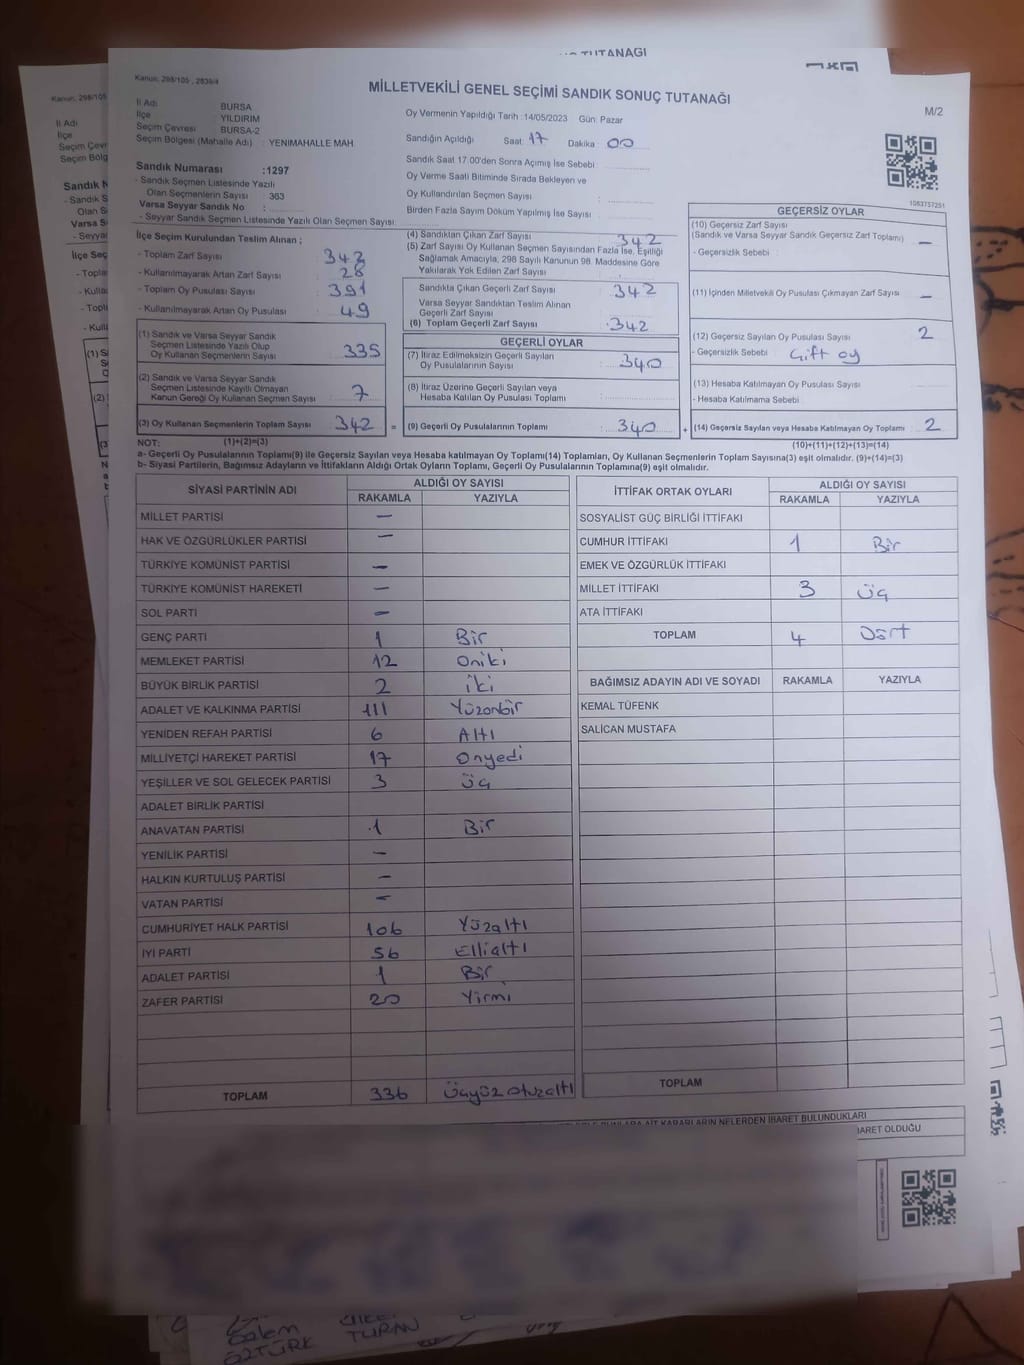 TUTANAĞI
Kanun: 298/105 , 2839/4
MİLLETVEKİLİ GENEL SEÇİMİ SANDIK SONUÇ TUTANAĞI
M/2
İl Adı : BURSA
İlçe : YILDIRIM
Seçim Çevresi : BURSA-2
Seçim Bölgesi (Mahalle Adı) : YENIMAHALLE MAH
Oy Vermenin Yapıldığı Tarih :14/05/2023 Gün: Pazar
Sandığın Açıldığı Saat: 17 Dakika : 00
Sandık Saat 17.00'den Sonra Açımış İse Sebebi :
Oy Verme Saati Bitiminde Sırada Bekleyen ve
Oy Kullandırılan Seçmen Sayısı :
Birden Fazla Sayım Döküm Yapılmış İse Sayısı :
Sandık Numarası :1297
- Sandık Seçmen Listesinde Yazılı
Olan Seçmenlerin Sayısı : 363
Varsa Seyyar Sandık No :
- Seyyar Sandık Seçmen Listesinde Yazılı Olan Seçmen Sayısı:
İlçe Seçim Kurulundan Teslim Alınan ;
- Toplam Zarf Sayısı : 342
- Kullanılmayarak Artan Zarf Sayısı : 28
- Toplam Oy Pusulası Sayısı : 391
- Kullanılmayarak Artan Oy Pusulası : 49
(1) Sandık ve Varsa Seyyar Sandık
Seçmen Listesinde Yazılı Olup
Oy Kullanan Seçmenlerin Sayısı : 335
(2) Sandık ve Varsa Seyyar Sandık
Seçmen Listesinde Kayıtlı Olmayan
Kanun Gereği Oy Kullanan Seçmen Sayısı : 7
(3) Oy Kullanan Seçmenlerin Toplam Sayısı : 342
(4) Sandıktan Çıkan Zarf Sayısı : 342
(5) Zarf Sayısı Oy Kullanan Seçmen Sayısından Fazla İse, Eşitliği
Sağlamak Amacıyla, 298 Sayılı Kanunun 98. Maddesine Göre
Yakılarak Yok Edilen Zarf Sayısı :
Sandıkta Çıkan Geçerli Zarf Sayısı : 342
Varsa Seyyar Sandıktan Teslim Alınan
Geçerli Zarf Sayısı
(6) Toplam Geçerli Zarf Sayısı : 342
GEÇERLİ OYLAR
(7) İtiraz Edilmeksizin Geçerli Sayılan
Oy Pusulalarının Sayısı : 340
(8) İtiraz Üzerine Geçerli Sayılan veya
Hesaba Katılan Oy Pusulası Toplamı :
= (9) Geçerli Oy Pusulalarının Toplamı : 340
1083757251
GEÇERSİZ OYLAR
(10) Geçersiz Zarf Sayısı
(Sandık ve Varsa Seyyar Sandık Geçersiz Zarf Toplamı) : —
- Geçersizlik Sebebi :
(11) İçinden Milletvekili Oy Pusulası Çıkmayan Zarf Sayısı : —
(12) Geçersiz Sayılan Oy Pusulası Sayısı : 2
- Geçersizlik Sebebi : Çift oy
(13) Hesaba Katılmayan Oy Pusulası Sayısı :
- Hesaba Katılmama Sebebi :
+ (14) Geçersiz Sayılan veya Hesaba Katılmayan Oy Toplamı : 2
NOT: (1)+(2)=(3) (10)+(11)+(12)+(13)=(14)
a- Geçerli Oy Pusulalarının Toplamı(9) ile Geçersiz Sayılan veya Hesaba katılmayan Oy Toplamı(14) Toplamları, Oy Kullanan Seçmenlerin Toplam Sayısına(3) eşit olmalıdır. (9)+(14)=(3)
b- Siyasi Partilerin, Bağımsız Adayların ve İttifakların Aldığı Ortak Oyların Toplamı, Geçerli Oy Pusulalarının Toplamına(9) eşit olmalıdır.
SİYASİ PARTİNİN ADI ALDIĞI OY SAYISI
RAKAMLA YAZIYLA
MİLLET PARTİSİ —
HAK VE ÖZGÜRLÜKLER PARTİSİ —
TÜRKİYE KOMÜNİST PARTİSİ —
TÜRKİYE KOMÜNİST HAREKETİ —
SOL PARTİ —
GENÇ PARTİ 1 Bir
MEMLEKET PARTİSİ 12 Oniki
BÜYÜK BİRLİK PARTİSİ 2 iki
ADALET VE KALKINMA PARTİSİ 111 Yüzonbir
YENİDEN REFAH PARTİSİ 6 Altı
MİLLİYETÇİ HAREKET PARTİSİ 17 Onyedi
YEŞİLLER VE SOL GELECEK PARTİSİ 3 Üç
ADALET BİRLİK PARTİSİ
ANAVATAN PARTİSİ 1 Bir
YENİLİK PARTİSİ —
HALKIN KURTULUŞ PARTİSİ —
VATAN PARTİSİ —
CUMHURİYET HALK PARTİSİ 106 Yüzaltı
İYİ PARTİ 56 Ellialtı
ADALET PARTİSİ 1 Bir
ZAFER PARTİSİ 20 Yirmi
TOPLAM 336 Üçyüz otuzaltı
İTTİFAK ORTAK OYLARI ALDIĞI OY SAYISI
RAKAMLA YAZIYLA
SOSYALİST GÜÇ BİRLİĞİ İTTİFAKI
CUMHUR İTTİFAKI 1 Bir
EMEK VE ÖZGÜRLÜK İTTİFAKI
MİLLET İTTİFAKI 3 Üç
ATA İTTİFAKI
TOPLAM 4 Dört
BAĞIMSIZ ADAYIN ADI VE SOYADI RAKAMLA YAZIYLA
KEMAL TÜFENK
SALİCAN MUSTAFA
TOPLAM
KARARLARIN NELERDEN İBARET BULUNDUKLARI
BARET OLDUĞU
ÖZTÜRK TURAN